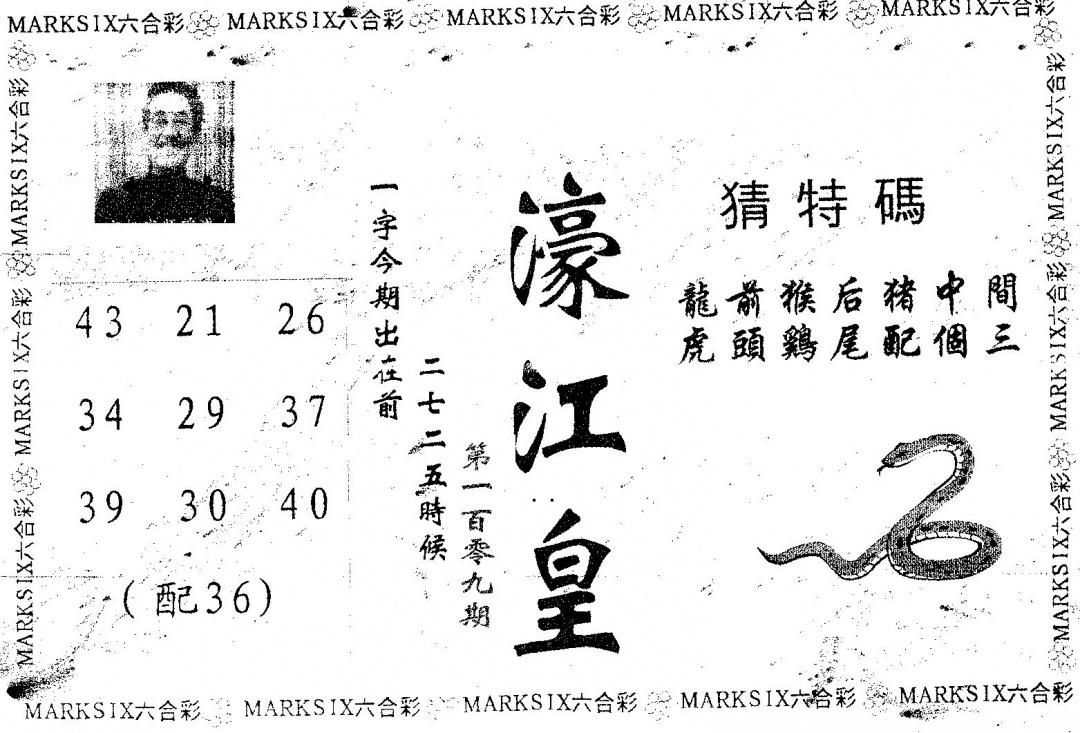 MARKSIX六合彩 MARKSIX六合彩 MARKSIX六合彩 MARKSIX六合彩 MARKSIX六合彩
MARKSIX六合彩 MARKSIX六合彩 MARKSIX六合彩
MARKSIX六合彩 MARKSIX六合彩 MARKSIX六合彩
猜特碼
龍前猴后猪中間
虎頭鷄尾配個三
濠江皇
第一百零九期
一字今期出在前
二七二五時候
43 21 26
34 29 37
39 30 40
(配36)
MARKSIX六合彩 MARKSIX六合彩 MARKSIX六合彩 MARKSIX六合彩 MARKSIX六合彩